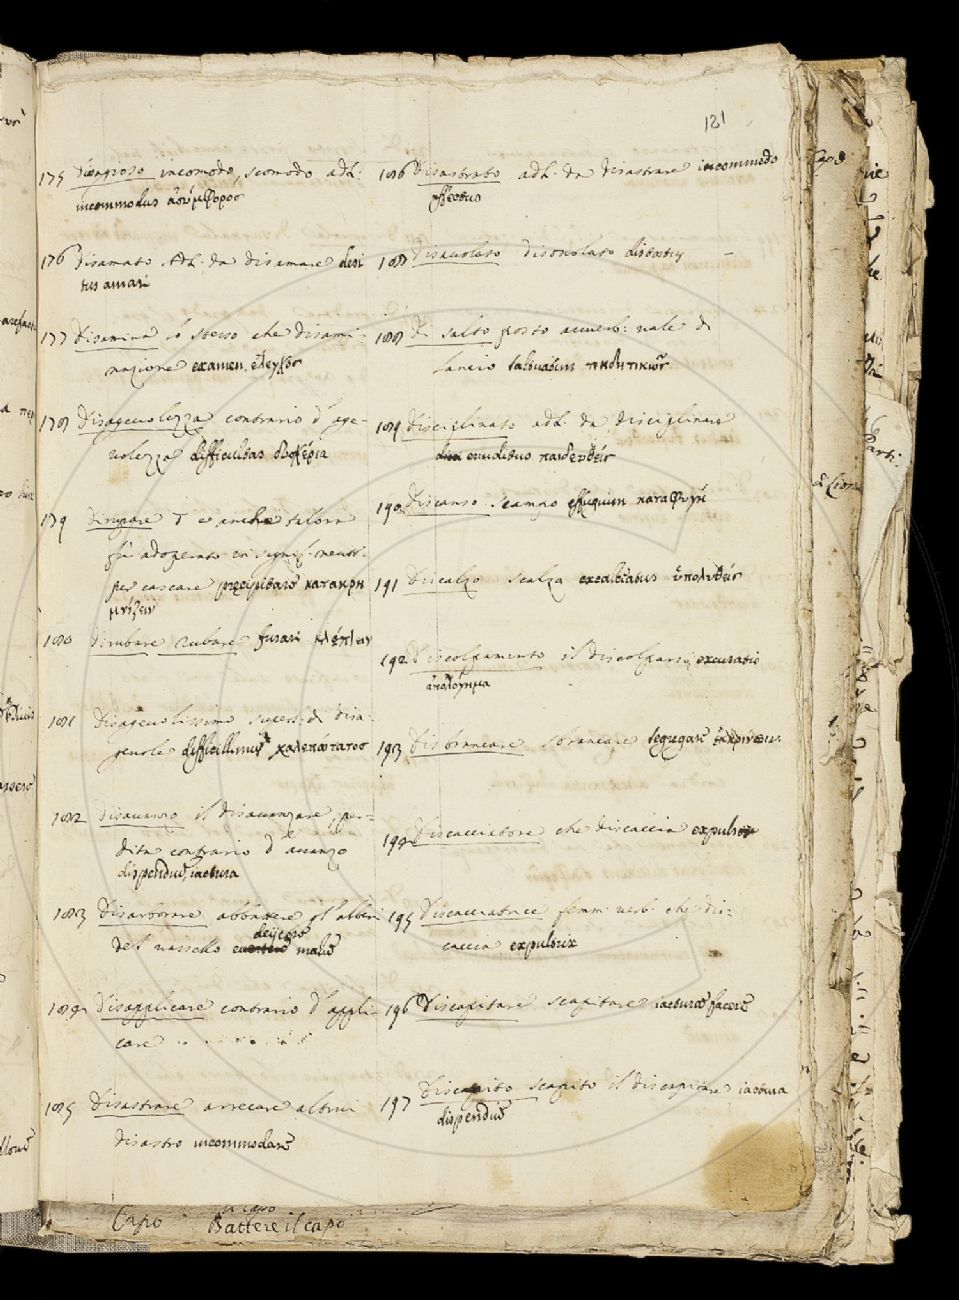 181
175 Disagioso incomodo, scomodo add:
incommodus ἀσύμφορος
176 Disamato Add. da disamare desi
tus amari
177 Disamina lo stesso che disami-
nazione examen, ἔλεγχος
178 Disagevolezza contrario d'age-
volezza difficultas δυσχέρια
179 Dirupare
fu adoperato in signif. neutr.
per cascare præcipitare κατακρη
μνίζειν
180 Dirubare rubare furari κλέπτειν
181 Disagevolissimo superl: di disa-
gevole difficillimus χαλεπώτατος
182 Disavanzo il disavanzare, per-
dita contrario d'avanzo
dispendiū, iactura
183 Disarborare abbattere gl'alberi
deijcere
del vascello malū
184 Disapplicare contrario d'appli-
care
185 Disastrare arrecare altrui
disastro incommodare
186 Disastrato add. da disastrare incommodo
affectus
187 Disavolato disonolato
188 Di salto posto avverb: vale di
lancio saltuatim πηδητικῶς
189 Disciplinato add. da disciplinare
eruditus παιδευθείς
190 Discanso scampo effugium καταφυγή
191 Discalzo scalzo excalceatus ὑπολυθείς
192 Discolpamento il discolparsi excusatio
ἀπολόγημα
193 Disbrancare sbrancare segregare ἐκκρίνειν
194 Discacciatore che discaccia expulsor
195 Discacciatrice femm: verb. che dis-
caccia expultrix
196 Discapitare scapitare iacturā facere
197 Discapito scapito il discapitare iactura
dispendiū
Capo
il capo
Battere il capo